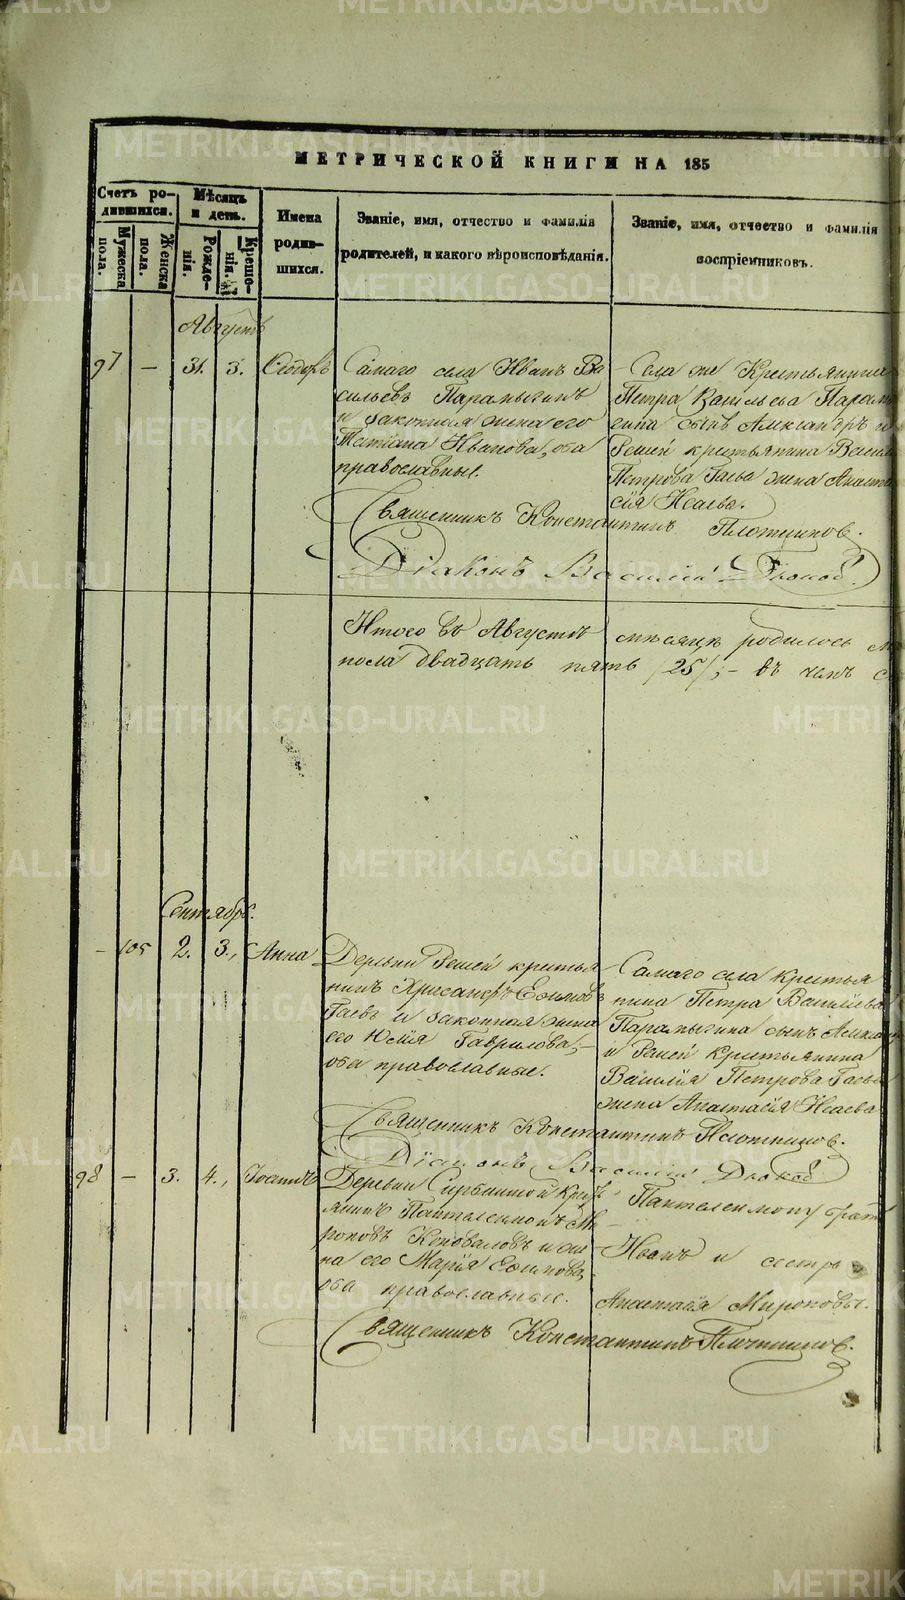 МЕТРИЧЕСКОЙ КНИГИ НА 185
Счетъ ро-
дившихся.
Мужеска
пола.
Женска
пола.
Мѣсяцъ
и день.
Рожде-
нія.
Креще-
нія.
Имена
родив-
шихся.
Званіе, имя, отчество и фамилія
родителей, и какого вѣроисповѣданія.
Званіе, имя, отчество и фамилія
воспріемниковъ.
Августъ
97 — 31. 3. Ѳеодоръ
Самаго села Иванъ Ва
сильевъ Парамыгинъ
и законная жена его
Татіана Иванова, оба
православные.
Села же Крестьянина
Петра Васильева Парам
гина сынъ Александръ и
Решей крестьянина Васил
Петрова Гаева жена Анаста
сія Исаева.
Священникъ Константинъ Плотниковъ.
Діаконъ Василій
Итого въ Августѣ мѣсяцѣ родилось м
пола двадцать пять /25/, — въ чемъ с
Сентябрь.
— 105 2. 3., Анна
Деревни Решей крестья
нинъ Хрисанфъ Ефимовъ
Гаевъ и законная жена
его Гаврилова, —
оба православные.
Самаго села крестья
нина Петра Васильева
Парамыгина сынъ Александ
и Решей Крестьянина
Василія Петрова Гаева
жена Анастасія Исаева
Священникъ Константинъ Плотниковъ.
Діаконъ Василій
98 — 3. 4., Іоаннъ
Деревни Крест
янинъ Пантелеимонъ Ми
роновъ Коноваловъ и же
на его Марія Ефимова,
оба православные.
Пантелеимону братъ
Иванъ и сестра
Анастасія Мироновы.
Священникъ Константинъ Плотниковъ.
METRIKI.GASO-URAL.RU